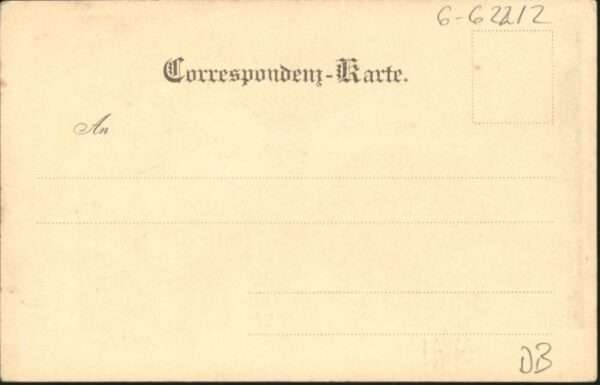 6-62212
Correspondenz-Karte.
An
DB